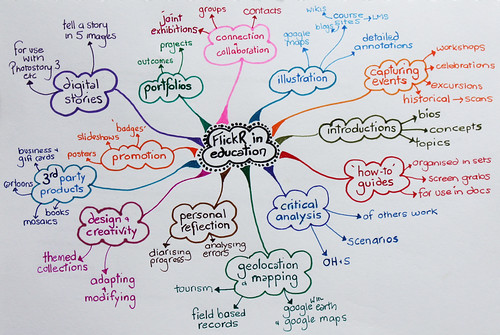 tell a story
in 5 images
for use with
Photostory 3
etc
digital
stories
groups
contacts
joint
exhibitions
connection
& collaboration
projects
outcomes
portfolios
wikis
course
sites
LMS
blogs
google
maps
detailed
annotations
illustration
capturing
events
workshops
celebrations
excursions
historical → scans
introductions
bios
concepts
topics
FlickR in
education
badges
slideshows
posters
promotion
business &
gift cards
3rd party
products
cartoons
books
mosaics
design &
creativity
themed
collections
adapting
& modifying
personal
reflection
diarising
progress
analysing
errors
geolocation
& mapping
tourism
field based
records
google earth
& google maps
critical
analysis
of others work
scenarios
OH+S
'how-to'
guides
organised in sets
screen grabs
for use in docs